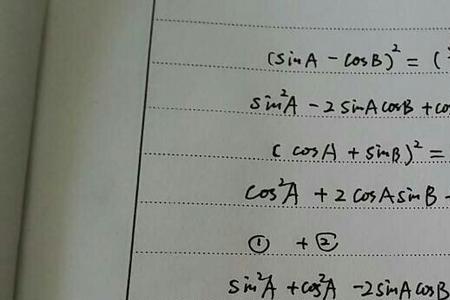 (sinA - cosB)² = (
sin²A - 2 sinA cosB + co
( cosA + sinB)² =
cos²A + 2 cosA sinB -
① + ②
sin²A + cos²A - 2 sinA cosB